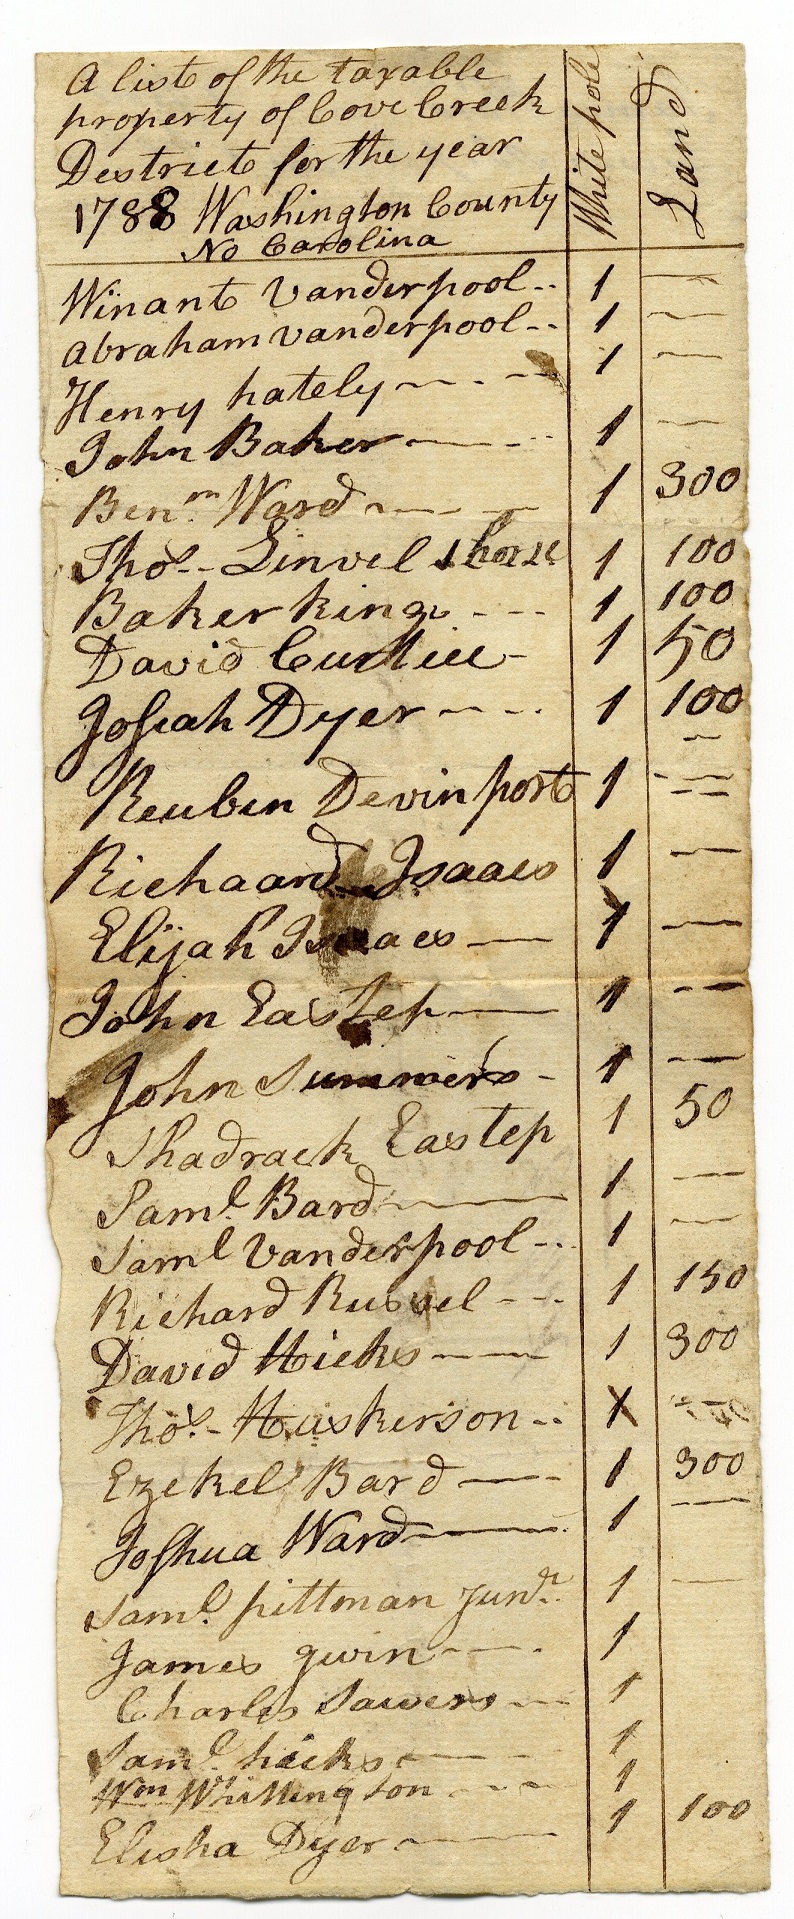 A list of the taxable
property of Cove Creek
Destrict for the year
1788 Washington County
No Carolina
White pole
Land
Winant Vanderpool .. 1 —
Abraham vanderpool .. 1 —
Henry hately — 1 —
John Baker — 1 —
Benj.m Ward — 1 300
Thos. Linvel 1 horse 1 100
Baker king 1 100
David 1 50
Josiah Dyer 1 100
Reuben Devinport 1 —
Richaard Isaacs 1 —
Elijah Isaacs — 1 —
John Eastep — 1 —
John Summers - 1 —
Shadrack Eastep 1 50
Saml. Bard — 1 —
Saml Vanderpool .. 1 —
Richard Russel 1 150
David Hicks — 1 300
Thos. Huskerson .. 1 —
Ezekel Bard — 1 300
Joshua Ward — 1 —
Saml. pittman Junr. 1 —
James gwin — 1
Charles Sawers — 1
Saml. hicks — 1
Wm Whittington 1
Elisha Dyer — 1 100